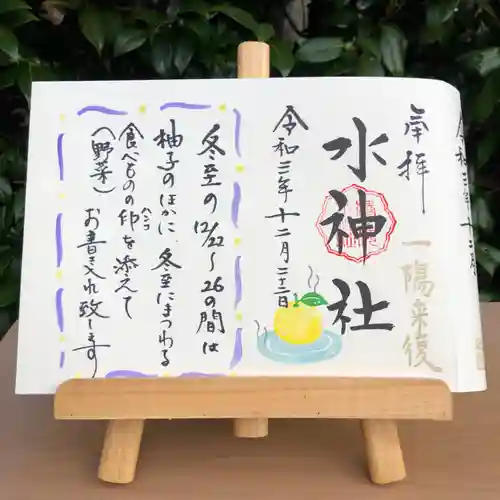 奉拝
一陽来復
水神社
令和三年十二月二十二日
冬至の12/22〜26の間は
柚子のほかに、冬至にまつわる
食べものの印を添えて
ハンコ
(野菜)お書き入れ致します